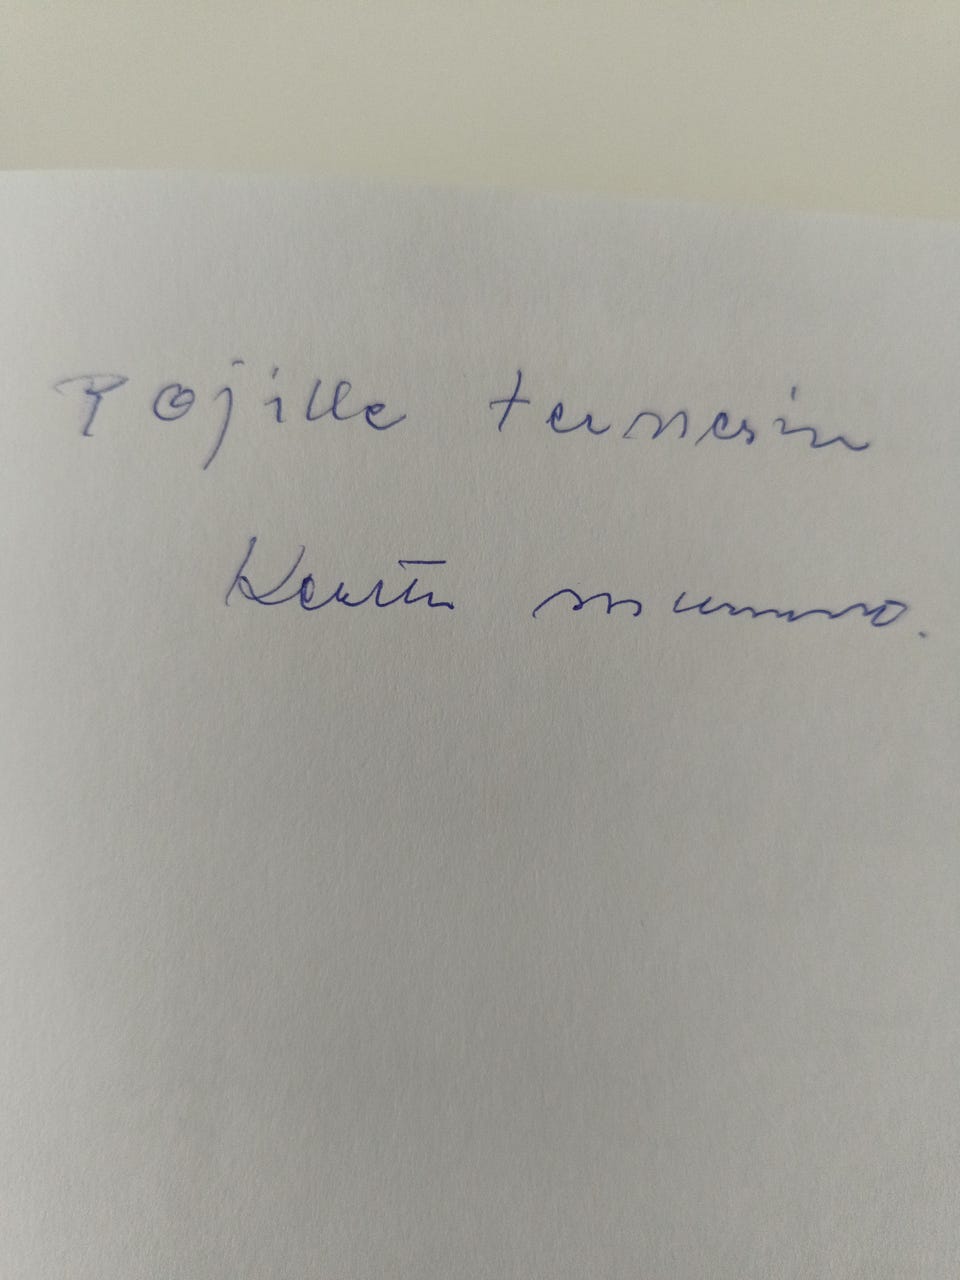 Pojille terveisin
Kerttu mummo.